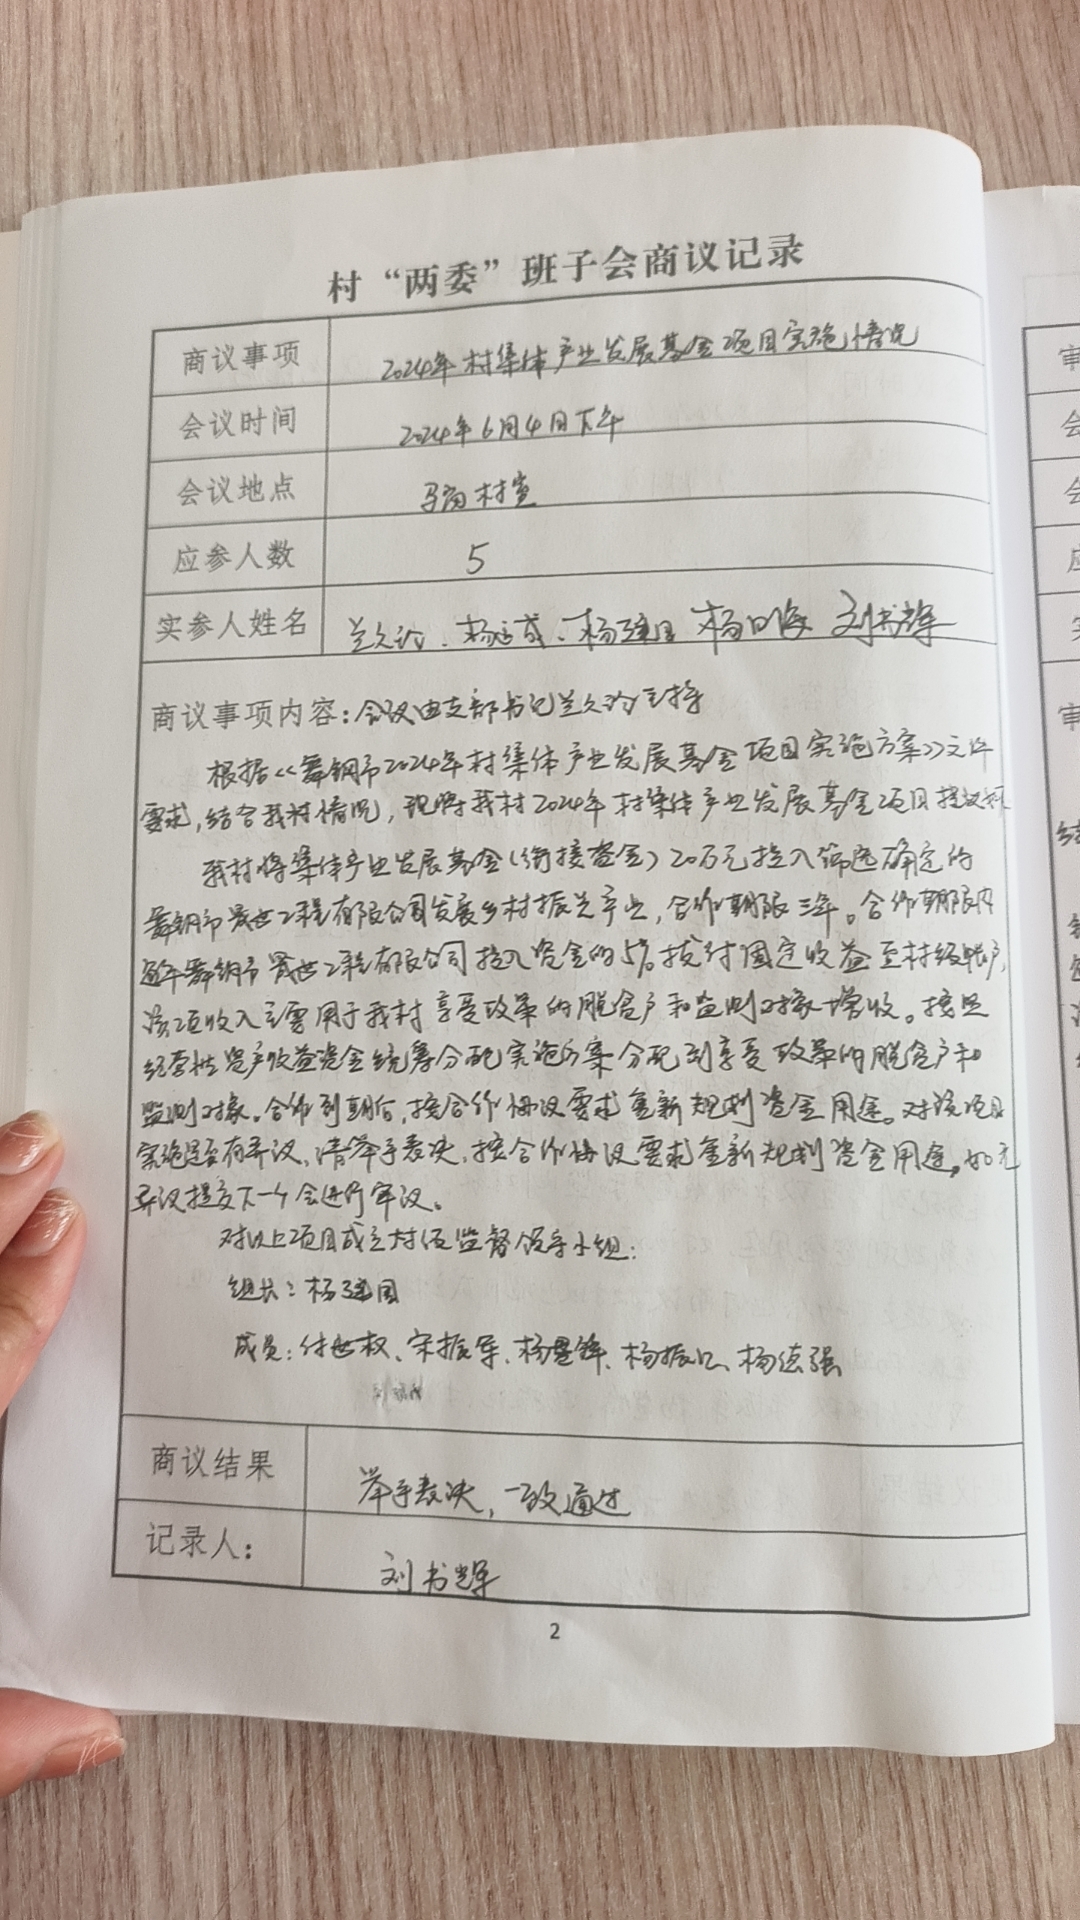 村“两委”班子会商议记录
商议事项 2024年村集体产业发展基金项目实施情况
会议时间 2024年6月4日下午
会议地点 马岗村室
应参人数 5
实参人姓名 杨建国 杨 刘书辉
商议事项内容：会议由支部书记兰久 主持
根据《舞钢市2024年村集体产业发展基金项目实施方案》文件
要求，结合我村情况，现将我村2024年村集体产业发展基金项目提议如下
我村将集体产业发展基金（衔接资金）20万元投入筛选确定的
舞钢市 世工程有限公司发展乡村振兴产业，合作期限三年。合作期限内
逐年舞钢市 世工程有限公司投入资金的5%拨付固定收益至村级账户，
该项收入主要用于我村享受政策的脱贫户和监测对象增收。按照
经营性资产收益资金统筹分配实施方案分配到享受政策的脱贫户和
监测对象。合作到期后，按合作协议要求重新规划资金用途。对该项目
实施是否有异议，请举手表决，按合作协议要求重新规划资金用途，如无
异议提交下一个会进行审议。
对以上项目成立村级监督领导小组：
组长：杨建国
成员：付世权、宋振军、杨 锋、杨振 、杨德强
商议结果 举手表决，一致通过
记录人： 刘书辉
2
审
会
会
应
实
审